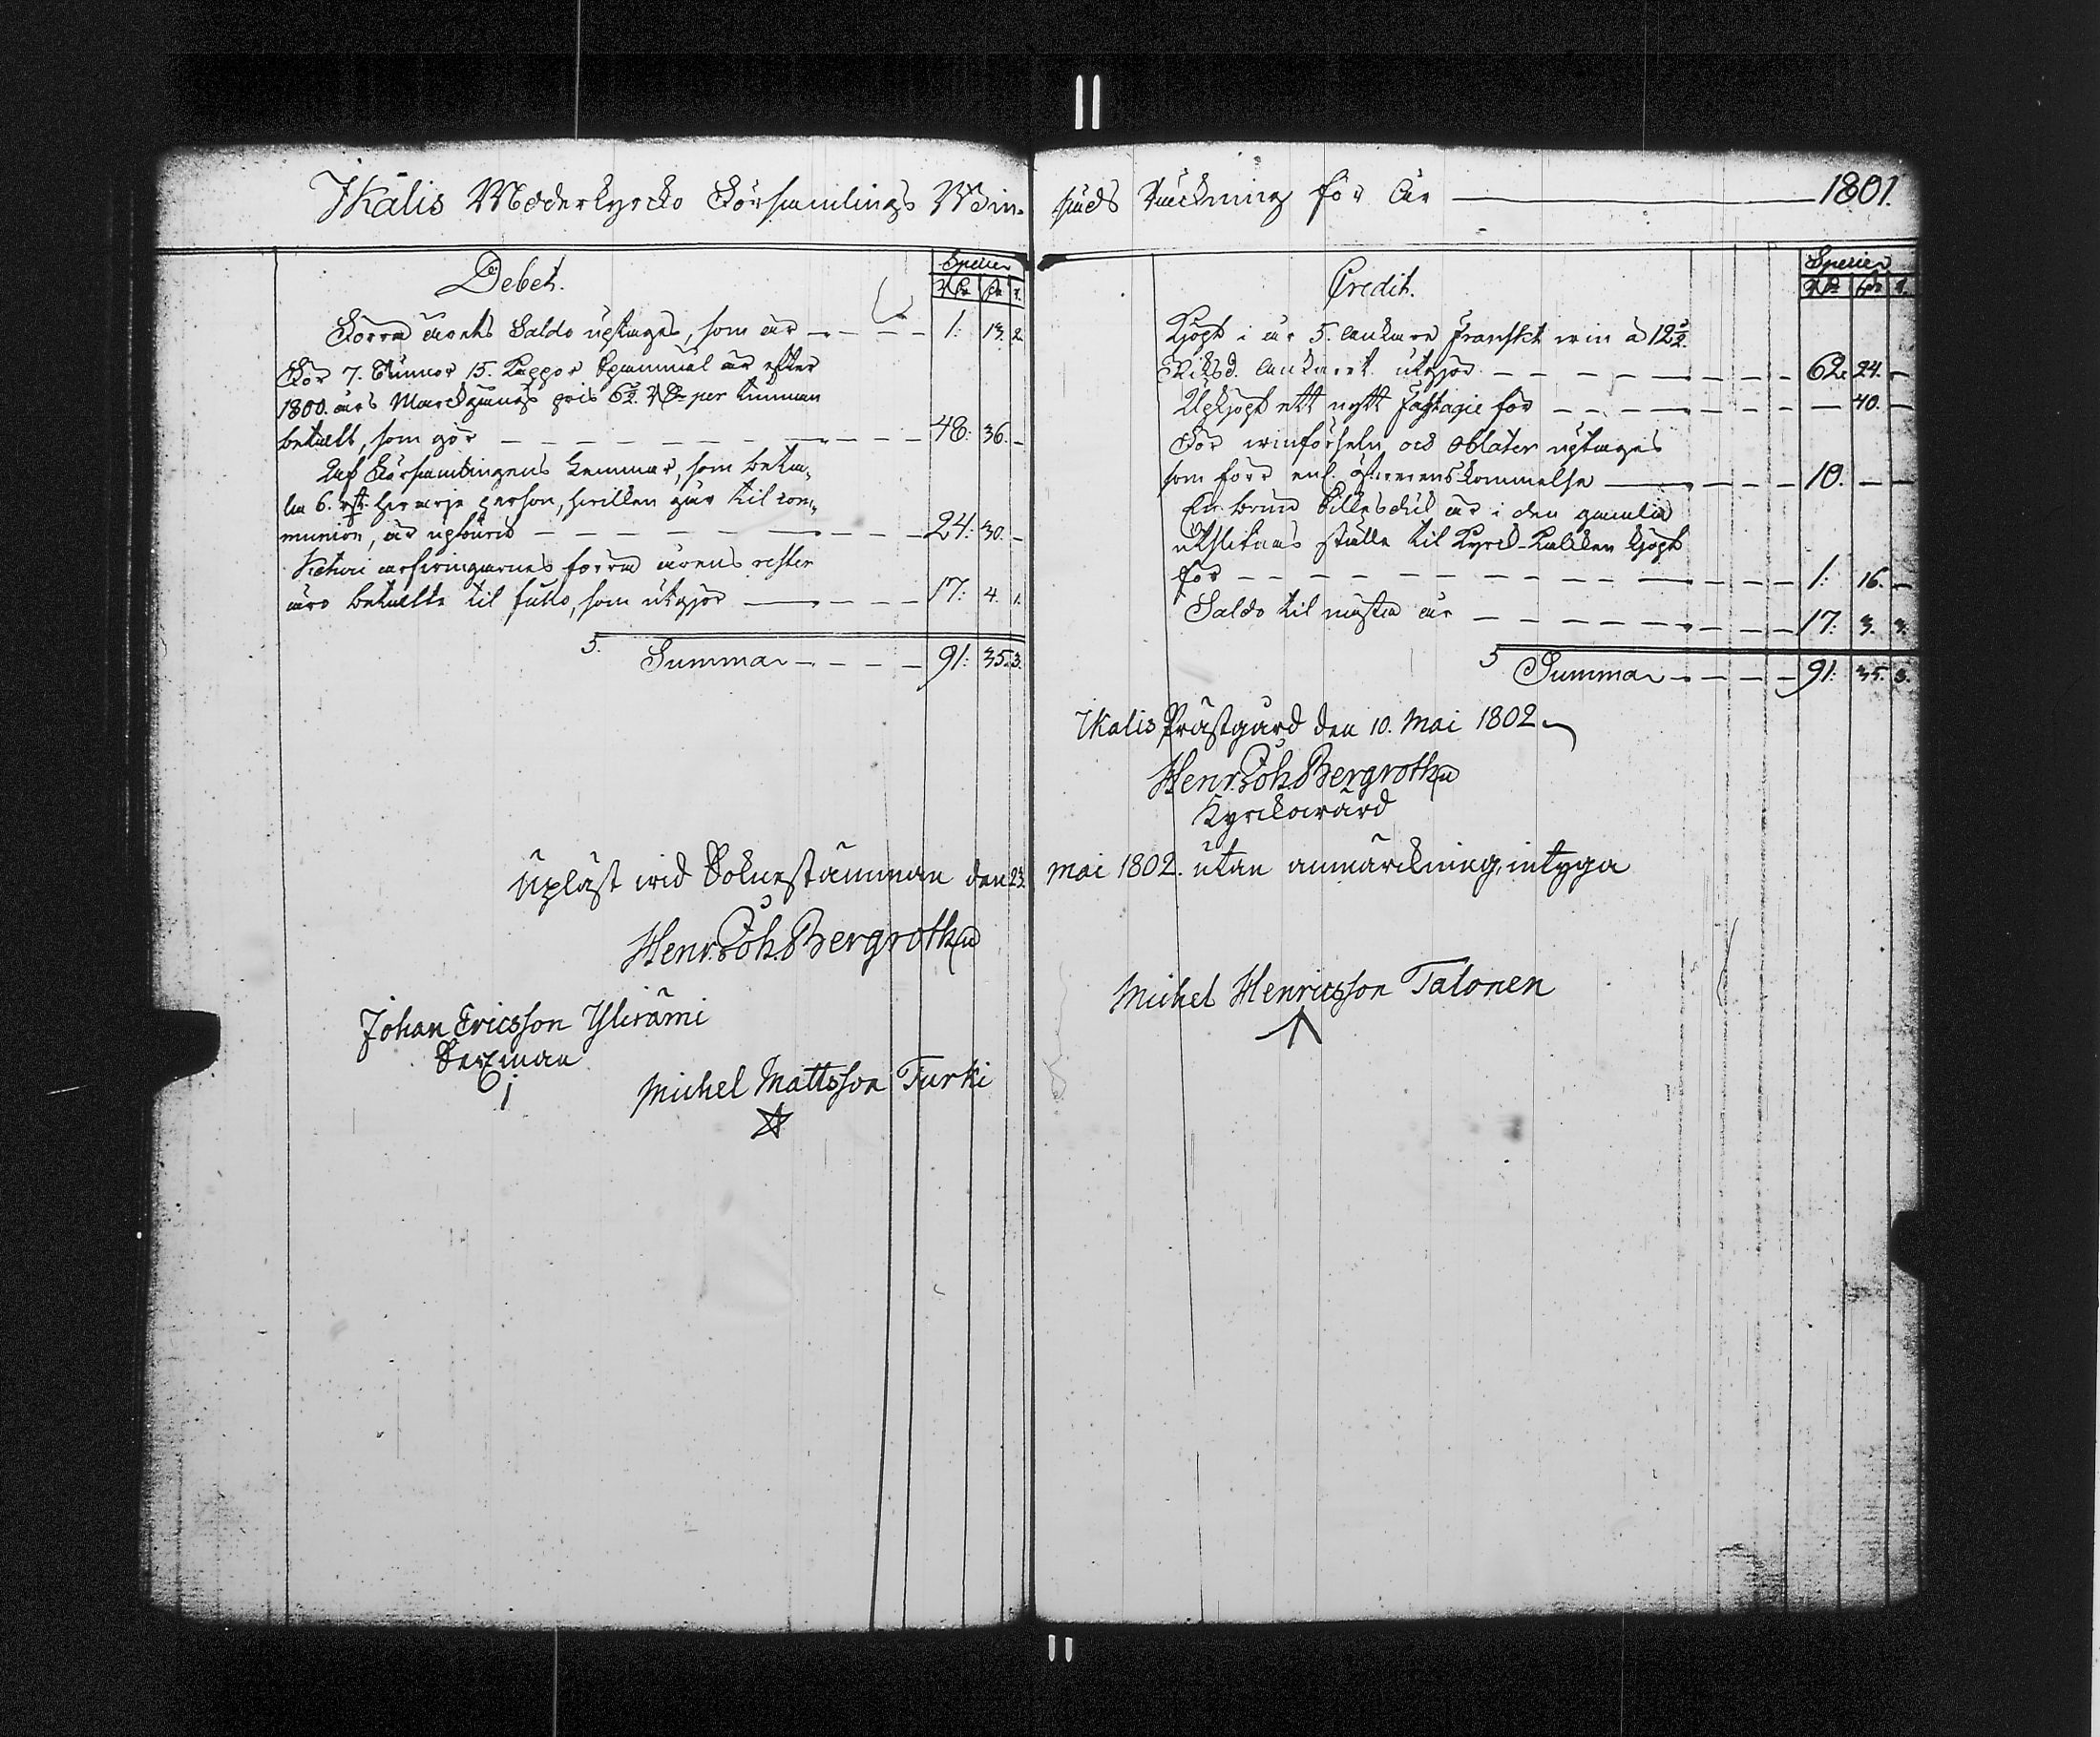 Ikalis Moderkyrcko Församlings Win-
Debet.
Specier
Rdr sk. r.
Förra årets Saldo uptages, som är — 1: 13. 2.
För 7. Tunnor 15. Kappor Spannmål är efter
1800. års Marckgångs pris 6½ Rdr per tunnan
betalt, som gör — 48: 36. –
Af Församlingens lemmar, som beta-
la 6. rst. hvarje person, hvilken går til com-
munion, är upburit — 24: 30. –
förra årens rester
äro betalte til fullo, som utgjör — 17: 4. 1.
S. Summa — 91: 35. 3.
Upläst wid Soknestämman den 23.
Henr. Joh. Bergroth
Johan Ericsson Ylirämi
Sexman
Michel Mattsson Turki
hus Räckning för År — 1801.
Credit.
Specier
Rdr sk. r.
Kjöpt i år 5. Ankare Franskt win à 12½
Riksd. Ankaret utgjör — 62: 24. –
Upkjöpt ett nytt Fastagie för — 40. –
För winförseln och Oblater uptages
som förr enl. öfverenskommelse — 10. – –
i den gamla
utslitnas ställe til Kyrck-Kalcken kjöpt
för — 1: 16. –
Saldo til nästa år — 17: 3. 3.
S Summa — 91: 35. 3.
Ikalis Prästgård den 10. Mai 1802
Henr. Joh. Bergroth
Kyrckowärd
mai 1802. utan anmärckning, intyga
Michel Henricsson Talonen